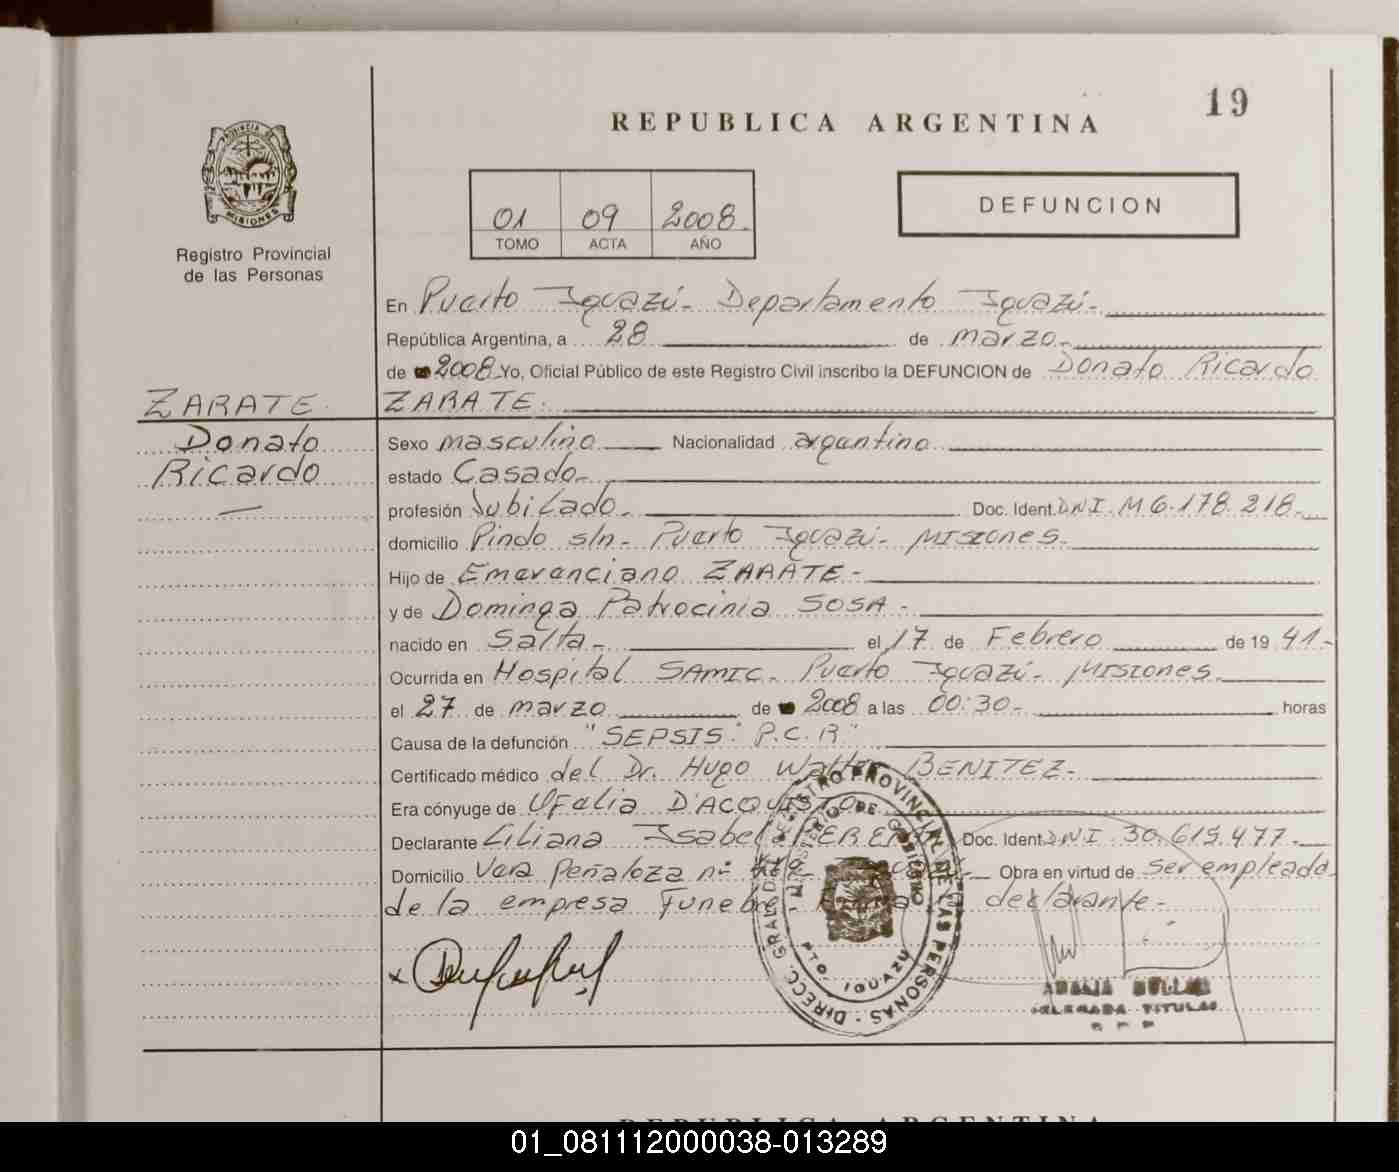 19
REPUBLICA ARGENTINA
PROVINCIA DE
MISIONES
Registro Provincial
de las Personas
01 09 2008.
TOMO ACTA AÑO
DEFUNCION
En Puerto Iguazú- Departamento Iguazú-
República Argentina, a 28 de marzo-
de 2008 Yo, Oficial Público de este Registro Civil inscribo la DEFUNCION de Donato Ricardo
ZARATE.
ZARATE.
Donato
Ricardo
Sexo masculino Nacionalidad argentino
estado Casado-
profesión Jubilado- Doc. Ident. DNI. M 6.178.218-
domicilio Pindo s/n- Puerto Iguazú- MISIONES-
Hijo de Emerenciano ZARATE-
y de Dominga Patrocinia SOSA-
nacido en Salta- el 17 de Febrero de 19 41-
Ocurrida en Hospital SAMIC- Puerto Iguazú- MISIONES-
el 27 de marzo de 2008 a las 00:30- horas
Causa de la defunción "SEPSIS" P.C.R"
Certificado médico del Dr. Hugo Walter BENITEZ-
Era cónyuge de Ofelia D'ACQUISTO
Declarante Liliana Isabel Doc. Ident. DNI. 30.615.477-
Domicilio Vera Peñaloza nº Obra en virtud de ser empleada
de la empresa declarante-
DIRECC. GRAL. DE REGISTRO PROVINCIAL DE LAS PERSONAS
MINISTERIO DE GOBIERNO
PTO. IGUAZU
DELEGADA TITULAR
R P P
REPUBLICA ARGENTINA
01_081112000038-013289